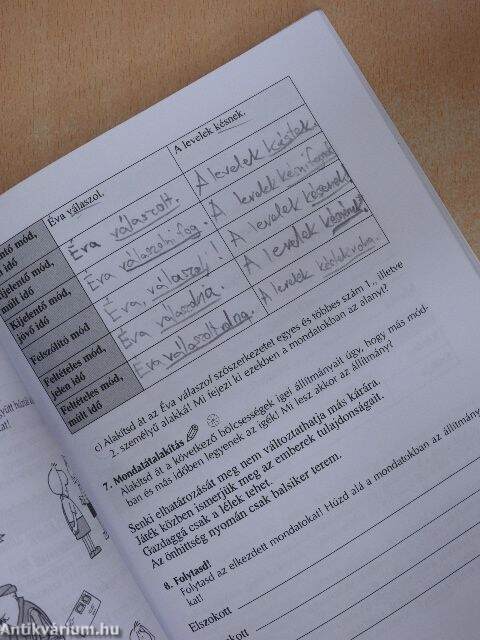 Éva válaszol.
A levelek késnek.
ntő mód,
idő
Éva válaszolt.
A levelek késtek.
ijelentő mód,
múlt idő
Éva válaszolni fog.
A levelek késni fognak
Kijelentő mód,
jövő idő
Éva, válaszolj!
A levelek
Felszólító mód
Éva válaszolna.
A levelek
Feltételes mód,
jelen idő
Éva válaszolt volna.
A levelek késtek volna.
Feltételes mód,
múlt idő
c) Alakítsd át az Éva válaszol szószerkezetet egyes és többes szám 1., illetve
2. személyű alakká! Mi fejezi ki ezekben a mondatokban az alanyt?
7. Mondatátalakítás
Alakítsd át a következő bölcsességek igei állítmányait úgy, hogy más mód-
ban és más időben legyenek az igék! Mi lesz akkor az állítmány?
Senki elhatározását meg nem változtathatja más kárára.
Játék közben ismerjük meg az emberek tulajdonságait.
Gazdaggá csak a lélek tehet.
Az önhittség nyomán csak balsiker terem.
8. Folytasd!
Folytasd az elkezdett mondatokat! Húzd alá a mondatokban az állítmány
kat!
Elszokott
kott
Antikvárium.hu